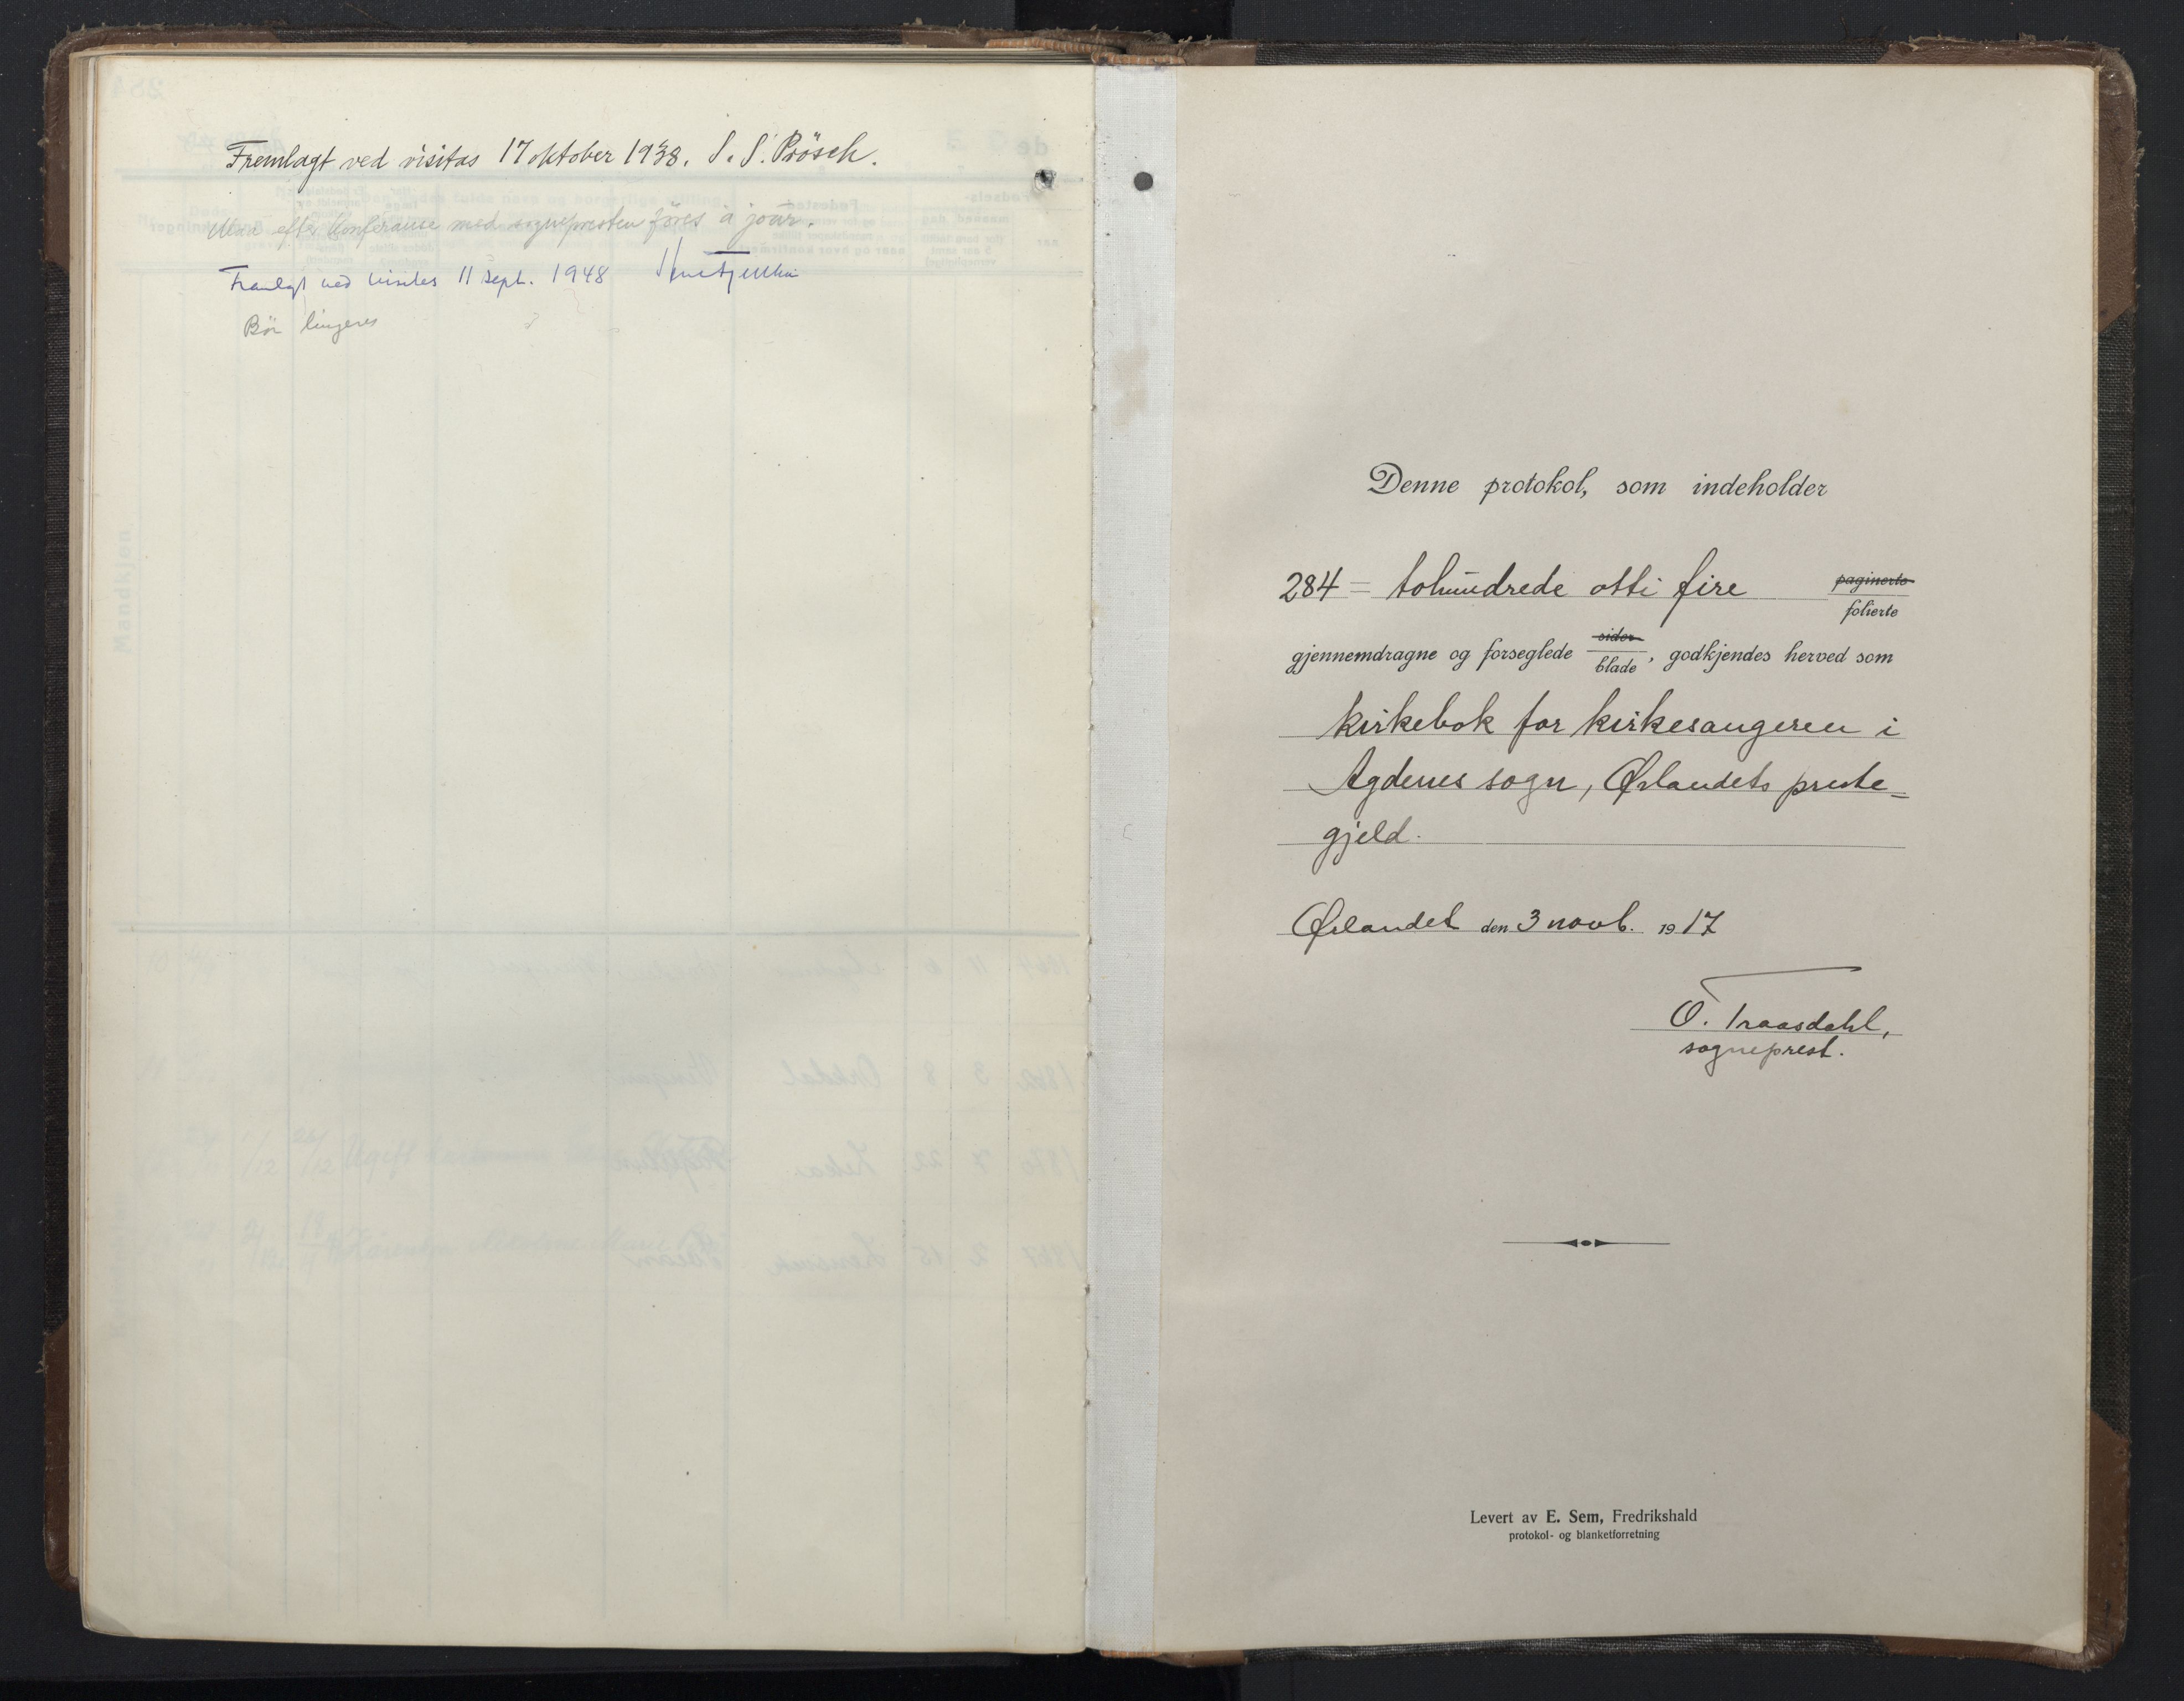 Fremlagt ved visitas 17 oktober 1938. S. S. Prösch.
Maa efter konferanse med sognepresten föres à jour.
Framlagt ved visitas 11 sept. 1948
Bör
Denne protokol, som indeholder
284 = tohundrede otti fire paginerte
folierte
gjennemdragne og forseglede sider
blade, godkjendes herved som
kirkebok for kirkesangeren i
Agdenes sogn, Ørlandets preste-
gjeld.
Ørlandet den 3 novb. 1917
O. Traasdahl,
sogneprest.
Levert av E. Sem, Fredrikshald
protokol- og blanketforretning